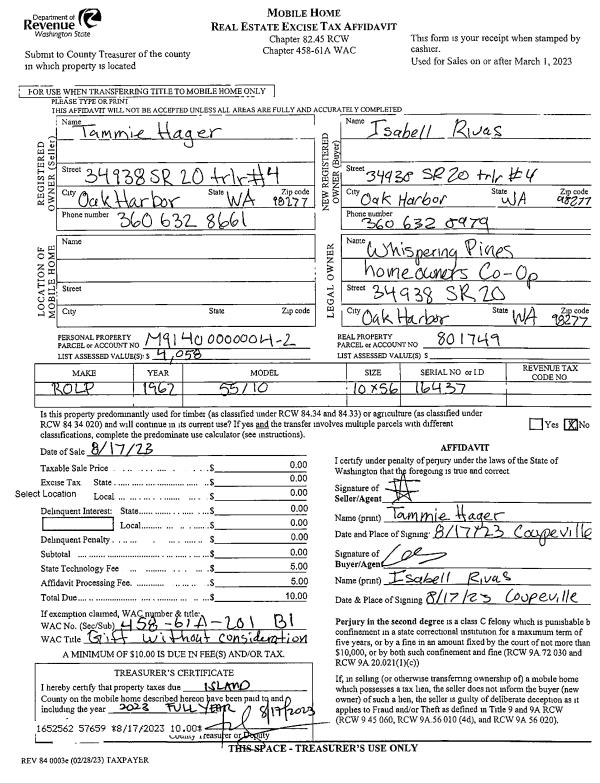 Department of
Revenue
Washington State
MOBILE HOME
REAL ESTATE EXCISE TAX AFFIDAVIT
Chapter 82.45 RCW
Chapter 458-61A WAC
This form is your receipt when stamped by
cashier.
Used for Sales on or after March 1, 2023
Submit to County Treasurer of the county
in which property is located
FOR USE WHEN TRANSFERRING TITLE TO MOBILE HOME ONLY
PLEASE TYPE OR PRINT
THIS AFFIDAVIT WILL NOT BE ACCEPTED UNLESS ALL AREAS ARE FULLY AND ACCURATELY COMPLETED
REGISTERED OWNER (Seller)
Name
Tammie Hager
Street 34938 SR 20 trlr #4
City Oak Harbor State WA Zip code 98277
Phone number 360 632 8661
NEW REGISTERED OWNER (Buyer)
Name Isabell Rivas
Street 34938 SR 20 trlr #4
City Oak Harbor State WA Zip code 98277
Phone number 360 632 0979
LOCATION OF MOBILE HOME
Name
Street
City State Zip code
LEGAL OWNER
Name Whispering Pines
homeowners Co-Op
Street 34938 SR 20
City Oak Harbor State WA Zip code 98277
PERSONAL PROPERTY
PARCEL or ACCOUNT NO M9140000004-2
LIST ASSESSED VALUE(S): $ 4,058
REAL PROPERTY
PARCEL or ACCOUNT NO 801749
LIST ASSESSED VALUE(S) $
MAKE YEAR MODEL SIZE SERIAL NO or I.D REVENUE TAX CODE NO
ROLP 1962 55/10 10x56 16437
Is this property predominantly used for timber (as classified under RCW 84.34 and 84.33) or agriculture (as classified under
RCW 84 34 020) and will continue in its current use? If yes and the transfer involves multiple parcels with different
classifications, complete the predominate use calculator (see instructions).
Yes X No
Date of Sale 8/17/23
Taxable Sale Price $ 0.00
Excise Tax State $ 0.00
Select Location Local $ 0.00
Delinquent Interest: State $ 0.00
Local $ 0.00
Delinquent Penalty $ 0.00
Subtotal $ 0.00
State Technology Fee $ 5.00
Affidavit Processing Fee $ 5.00
Total Due $ 10.00
If exemption claimed, WAC number & title:
WAC No. (Sec/Sub) 458-61A-201 B1
WAC Title Gift without consideration
A MINIMUM OF $10.00 IS DUE IN FEE(S) AND/OR TAX.
TREASURER'S CERTIFICATE
I hereby certify that property taxes due ISLAND
County on the mobile home described hereon have been paid to and
including the year 2023 FULL YEAR 8/17/2023
1652562 57659 8/17/2023 10.00
County Treasurer or Deputy
AFFIDAVIT
I certify under penalty of perjury under the laws of the State of
Washington that the foregong is true and correct
Signature of
Seller/Agent
Name (print) Tammie Hager
Date and Place of Signing: 8/17/23 Coupeville
Signature of
Buyer/Agent
Name (print) Isabell Rivas
Date & Place of Signing 8/17/23 Coupeville
Perjury in the second degree is a class C felony which is punishable b
confinement in a state correctional institution for a maximum term of
five years, or by a fine in an amount fixed by the court of not more than
$10,000, or by both such confinement and fine (RCW 9A 72 030 and
RCW 9A 20.021(1)(c))
If, in selling (or otherwise transferring ownership of) a mobile home
which possesses a tax lien, the seller does not inform the buyer (new
owner) of such a lien, the seller is guilty of deliberate deception as it
applies to Fraud and/or Theft as defined in Title 9 and 9A RCW
(RCW 9 45 060, RCW 9A 56 010 (4d), and RCW 9A 56 020).
THIS SPACE - TREASURER'S USE ONLY
REV 84 0003e (02/28/23) TAXPAYER